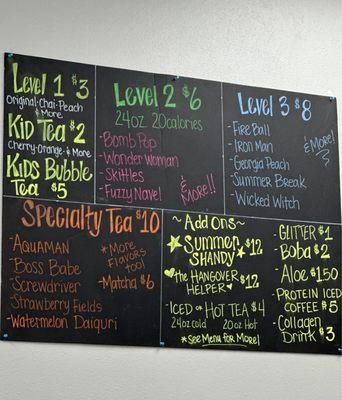 Level 1 $3
Original·Chai·Peach
& More
Kid Tea $2
Cherry·Orange·& More
Kids Bubble
Tea $5
Level 2 $6
24oz 20calories
-Bomb Pop
-Wonder Woman
-Skittles
-Fuzzy Navel
& More!!
Level 3 $8
-Fire Ball
-Iron Man
-Georgia Peach
-Summer Break
-Wicked Witch
& More!
Specialty Tea $10
-Aquaman
-Boss Babe
-Screwdriver
-Strawberry Fields
-Watermelon Daiquri
*More
Flavors
too!
-Matcha $6
~Add Ons~
Summer
Shandy $12
the Hangover
Helper $12
Iced or Hot Tea $4
24oz cold 20oz Hot
*See Menu for More!
-Glitter $1
-Boba $2
-Aloe $1.50
-Protein Iced
Coffee $5
-Collagen
Drink $3